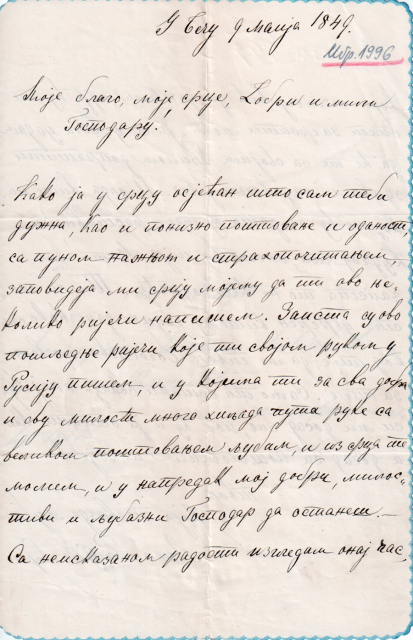 У Бечу 9 Маија 1849.
Мбр. 1996
Моје благо, моје срце, Добри и мили
Господару,
Како ја у срцу осјећам што сам теби
дужна, као и понизно поштоване и оданост,
са пуном нажњом и страхопочитањем,
заповидеја ми срцу мојему да ти ово не-
колико ријечи напишем. Заиста су ово
пошљедње ријечи које ти својом руком у
Русију пишем, и у којима ти за сва добра
и сву милост много хиљада пута руке са
великом поштовањем љубим, и из срца те
молим, и у напредак мој добри, милос-
тиви и љубазни Господар да останеш. —
Са неисказаном радости изгледам онај час,